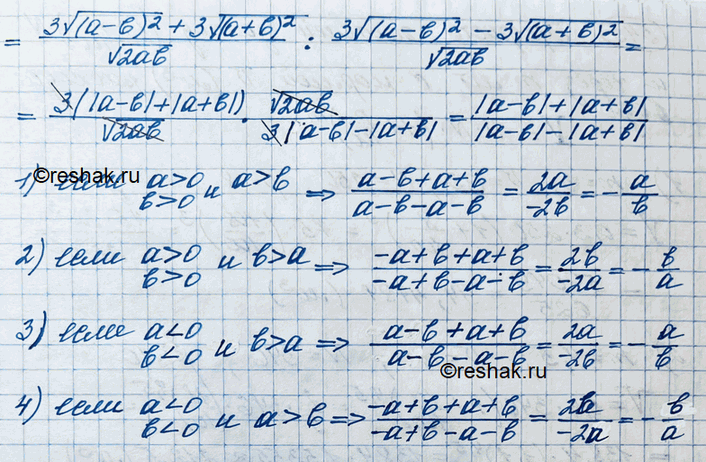 = (3√(a-b)² + 3√(a+b)²)/√2ab : (3√(a-b)² - 3√(a+b)²)/√2ab =
= 3(|a-b|+|a+b|)/√2ab · √2ab/3|a-b|-|a+b| = (|a-b|+|a+b|)/(|a-b|-|a+b|)
©reshak.ru
1) если a>0 b>0 и a>b ⇒ (a-b+a+b)/(a-b-a-b) = 2a/-2b = -a/b
2) если a>0 b>0 и b>a ⇒ (-a+b+a+b)/(-a+b-a-b) = 2b/-2a = -b/a
3) если a<0 b<0 и b>a ⇒ (a-b+a+b)/(a-b-a-b) = 2a/-2b = -a/b
©reshak.ru
4) если a<0 b<0 и a>b ⇒ (-a+b+a+b)/(-a+b-a-b) = 2b/-2a = -b/a